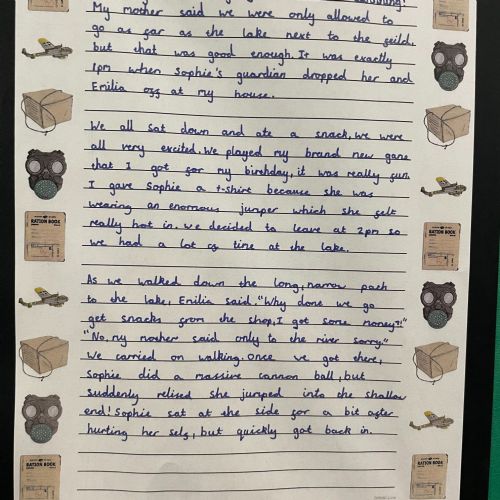 My mother said we were only allowed to
go as far as the lake next to the feild,
but that was good enough. It was exactly
1pm when Sophie's guardian dropped her and
Emilia off at my house.
We all sat down and ate a snack, we were
all very excited. We played my brand new game
that I got for my birthday, it was really fun.
I gave Sophie a t-shirt because she was
wearing an enormous jumper which she felt
really hot in. We decided to leave at 2pm so
we had a lot of time at the lake.
As we walked down the long, narrow path
to the lake, Emilia said. "Why dont we go
get snacks from the shop, I got some money?!"
"No, my mother said only to the river sorry."
We carried on walking. Once we got there,
Sophie did a massive cannon ball, but
suddenly relised she jumped into the shallow
end! Sophie sat at the side for a bit after
hurting her self, but quickly got back in.
RATION BOOK
RATION BOOK
RATION BOOK
RATION BOOK